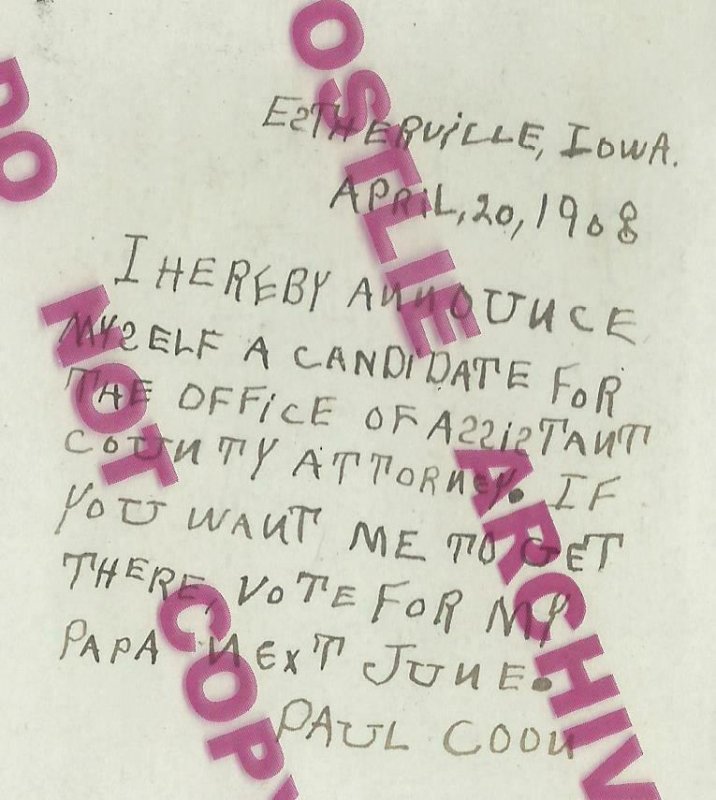 ESTHERVILLE, IOWA.
APRIL, 20, 1908
I HEREBY ANNOUNCE
MYSELF A CANDIDATE FOR
THE OFFICE OF ASSISTANT
COUNTY ATTORNEY. IF
YOU WANT ME TO GET
THERE, VOTE FOR MY
PAPA NEXT JUNE.
PAUL COON
DO NOT COPY
OSTLIE ARCHIV